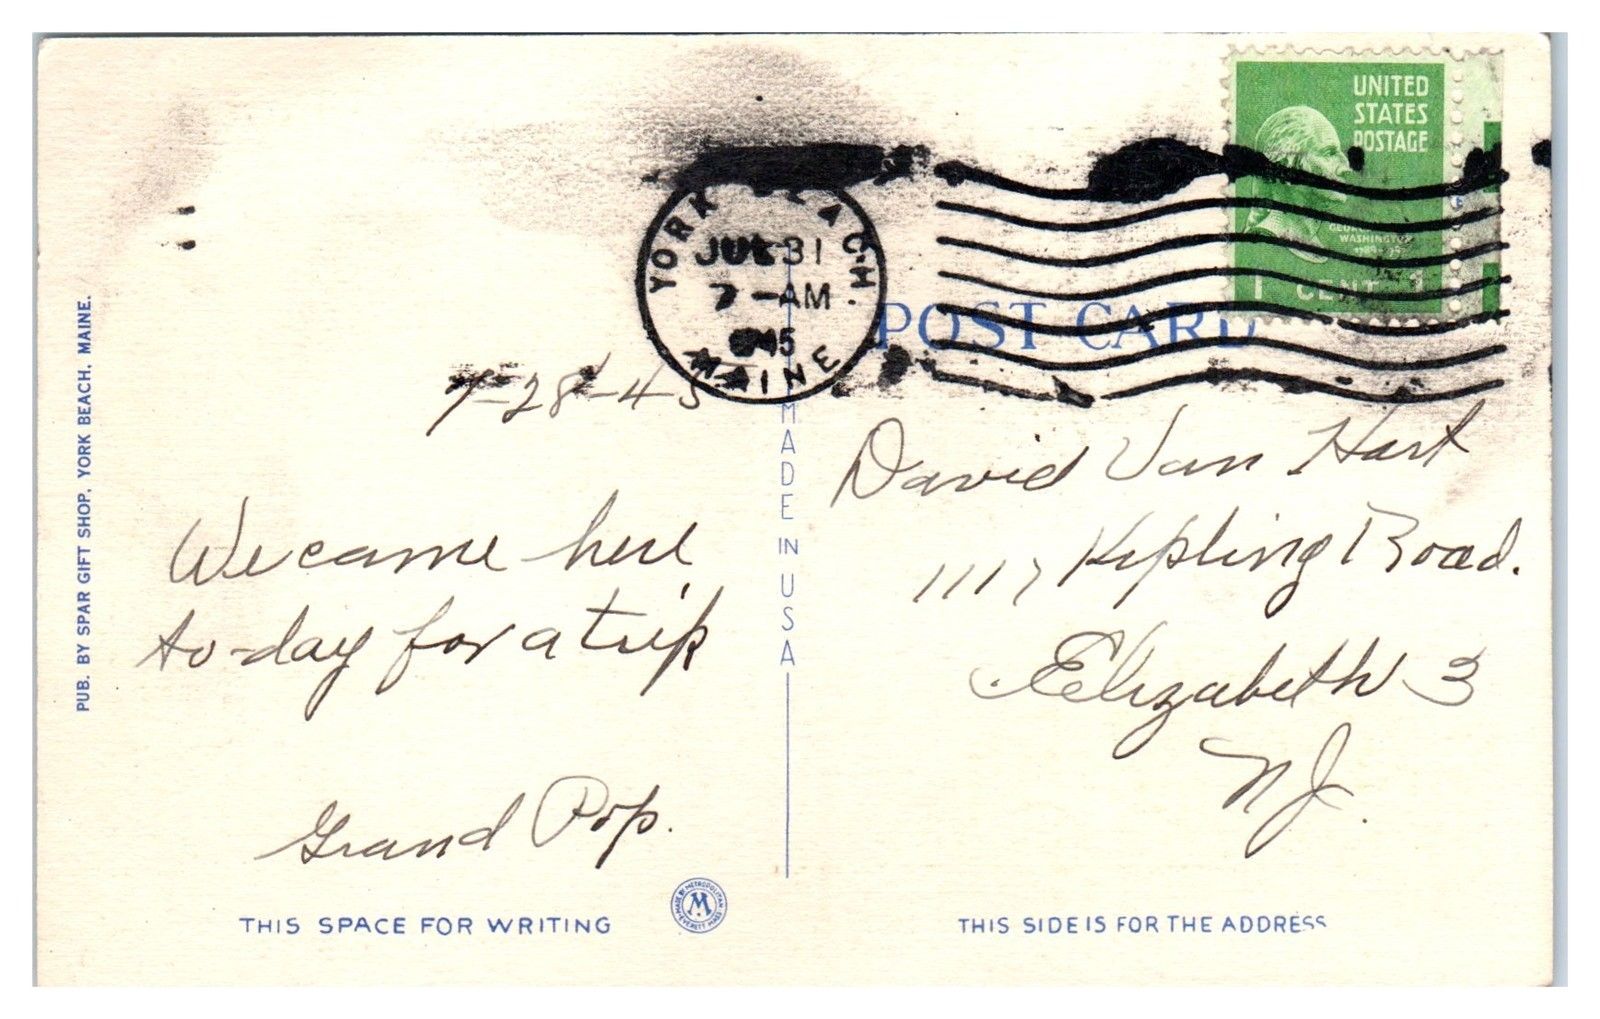 PUB. BY SPAR GIFT SHOP, YORK BEACH, MAINE.
7-28-45
We came here
to-day for a trip
Grand Pop.
THIS SPACE FOR WRITING
MADE BY METROPOLITAN
M
EVERETT MASS
MADE IN USA
YORK BEACH
JUL 31
7-AM
MAINE
UNITED
STATES
POSTAGE
GEORGE
WASHINGTON
1 CENT 1
POST CARD
David Van Hart
1117 Kipling Road.
Elizabeth 3
NJ.
THIS SIDE IS FOR THE ADDRESS